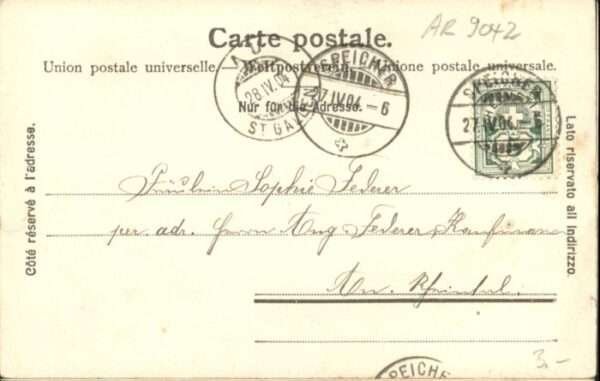 AR 9042
Carte postale.
Union postale universelle. — Weltpostverein. — Unione postale universale.
Nur für die Adresse.
28.IV.04
ST GALLEN
SPEICHER
27.IV.04.-6
SPEICHER
27.IV.04.-6
Côté réservé à l'adresse.
Lato riservato all indirizzo.
Fräulein Sophie Federer
per. adr. Herrn Aug Federer Kaufmann
Rheintal.
3.-
SPEICHE